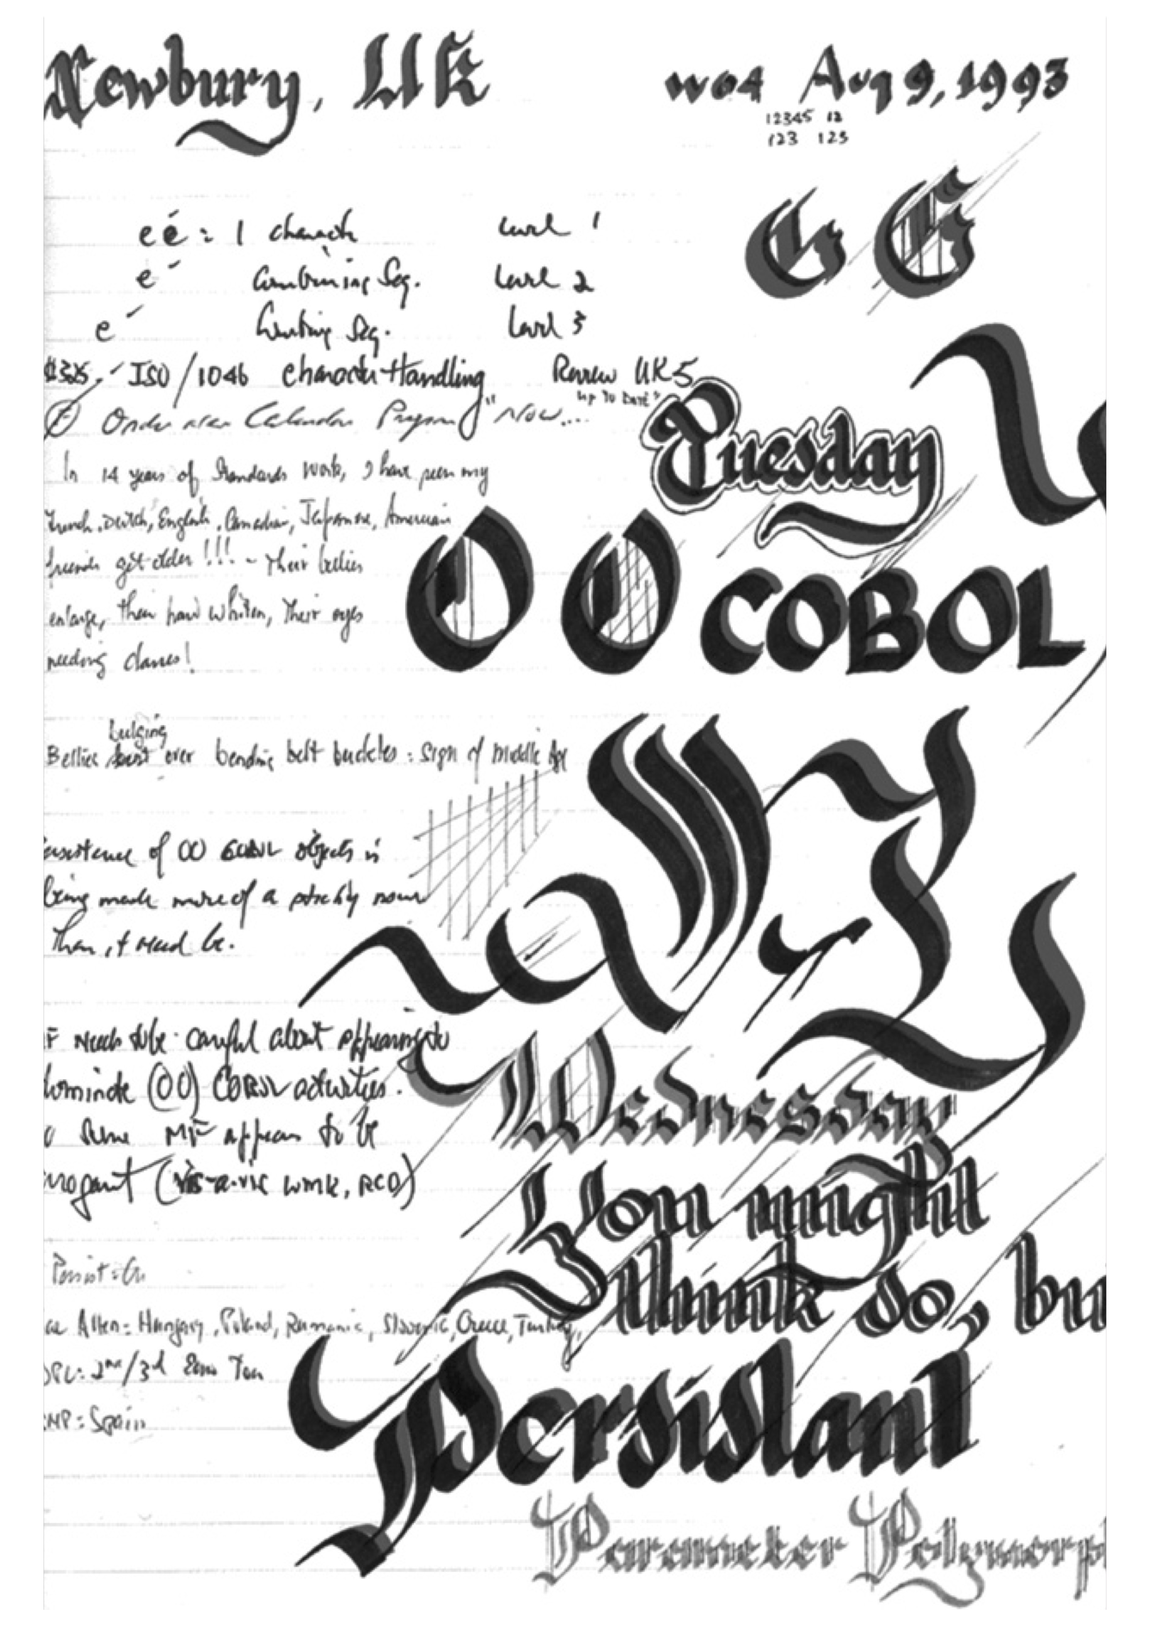 Newbury, UK
WG4 Aug 9, 1993
12345 12
123 123
G G
e é = 1 character Level 1
e ´ Combining Seq. Level 2
e ´ Seq. Level 3
ISO/1046 Character Handling Review UK5
"up to date"
Calendar Program "Now....
Tuesday
In 14 years of Standards work, I have seen my
French, Dutch, English, Canadian, Japanese, American
friends get older !!! - Their bellies
enlarge, their hair whiten, Their eyes
needing glasses!
OO COBOL
bulging
Bellies over bending belt buckles = sign of Middle Age
of OO COBOL objects is
being made more of a than it need be.
MF needs to be careful about appearing to
dominate (OO) COBOL activities.
some MF appears to be
arrogant (vis-a-vis work, RCO)
Wednesday
You might
think so, bu
Persist =
Allen = Hungary, Poland, Rumania, Slavonic, Greece, Turkey,
2nd/3rd Euro
MP = Spain
Persistant
Parameter Polymorph